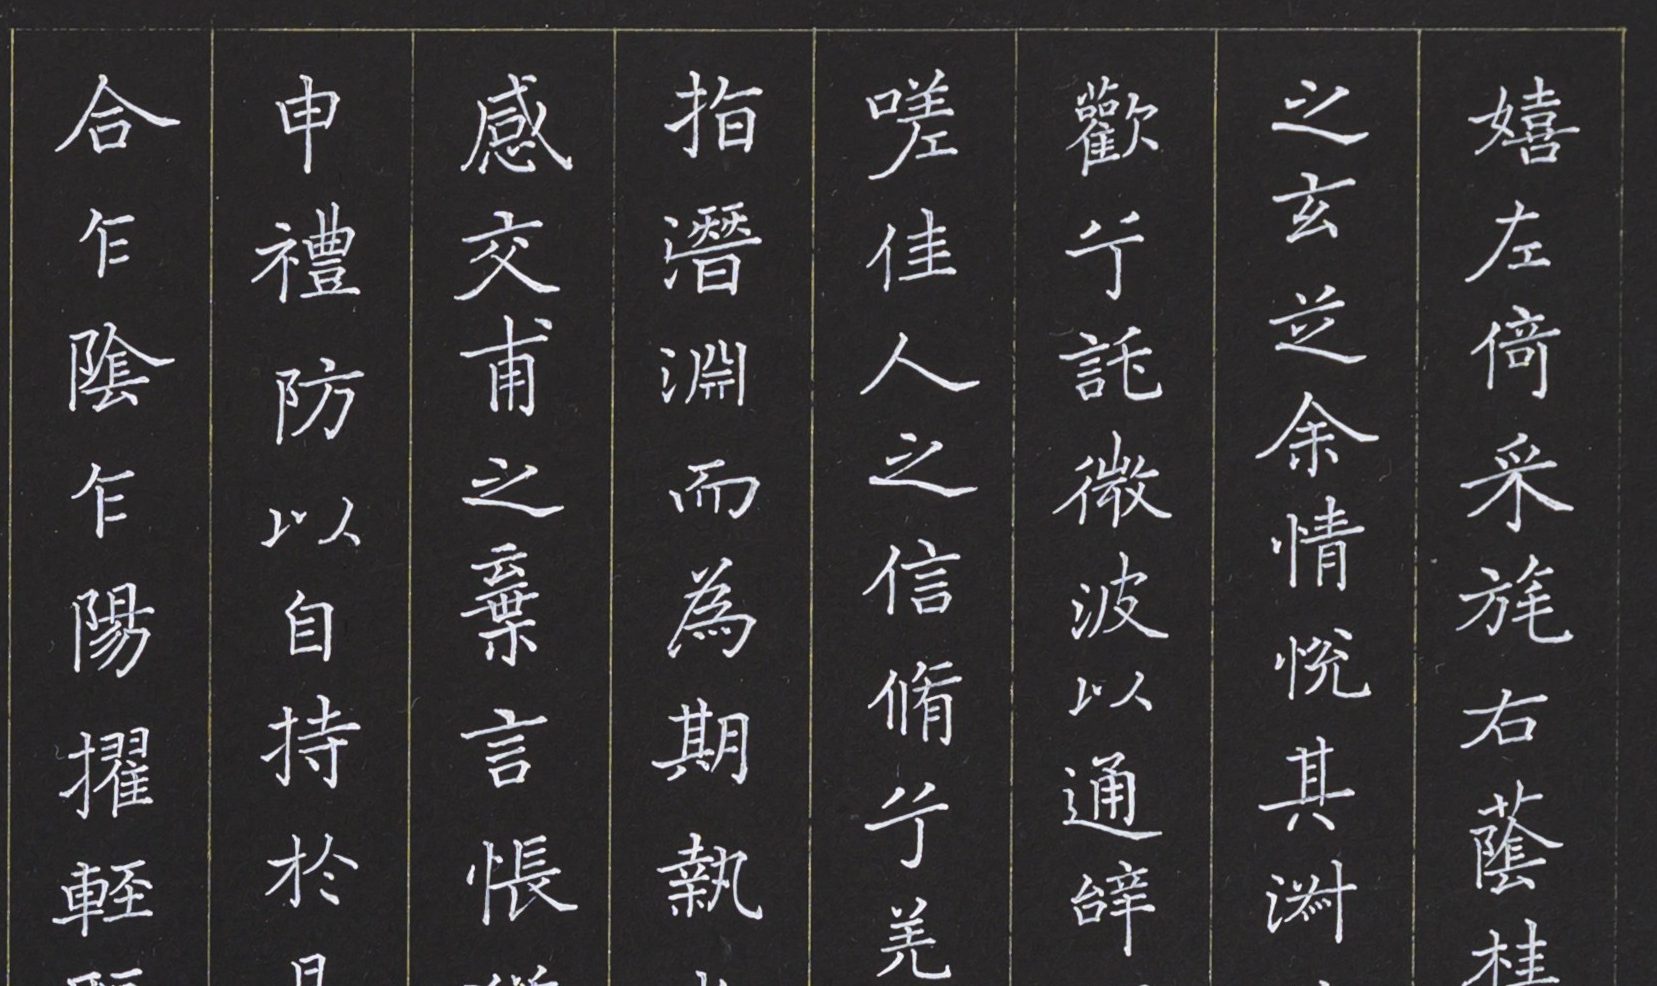 嬉左倚采旄右蔭桂
之玄芝余情悅其淑
歡兮託微波以通辭
嗟佳人之信脩兮羌
指潛淵而為期執
感交甫之棄言悵
申禮防以自持於
合乍陰乍陽擢輕